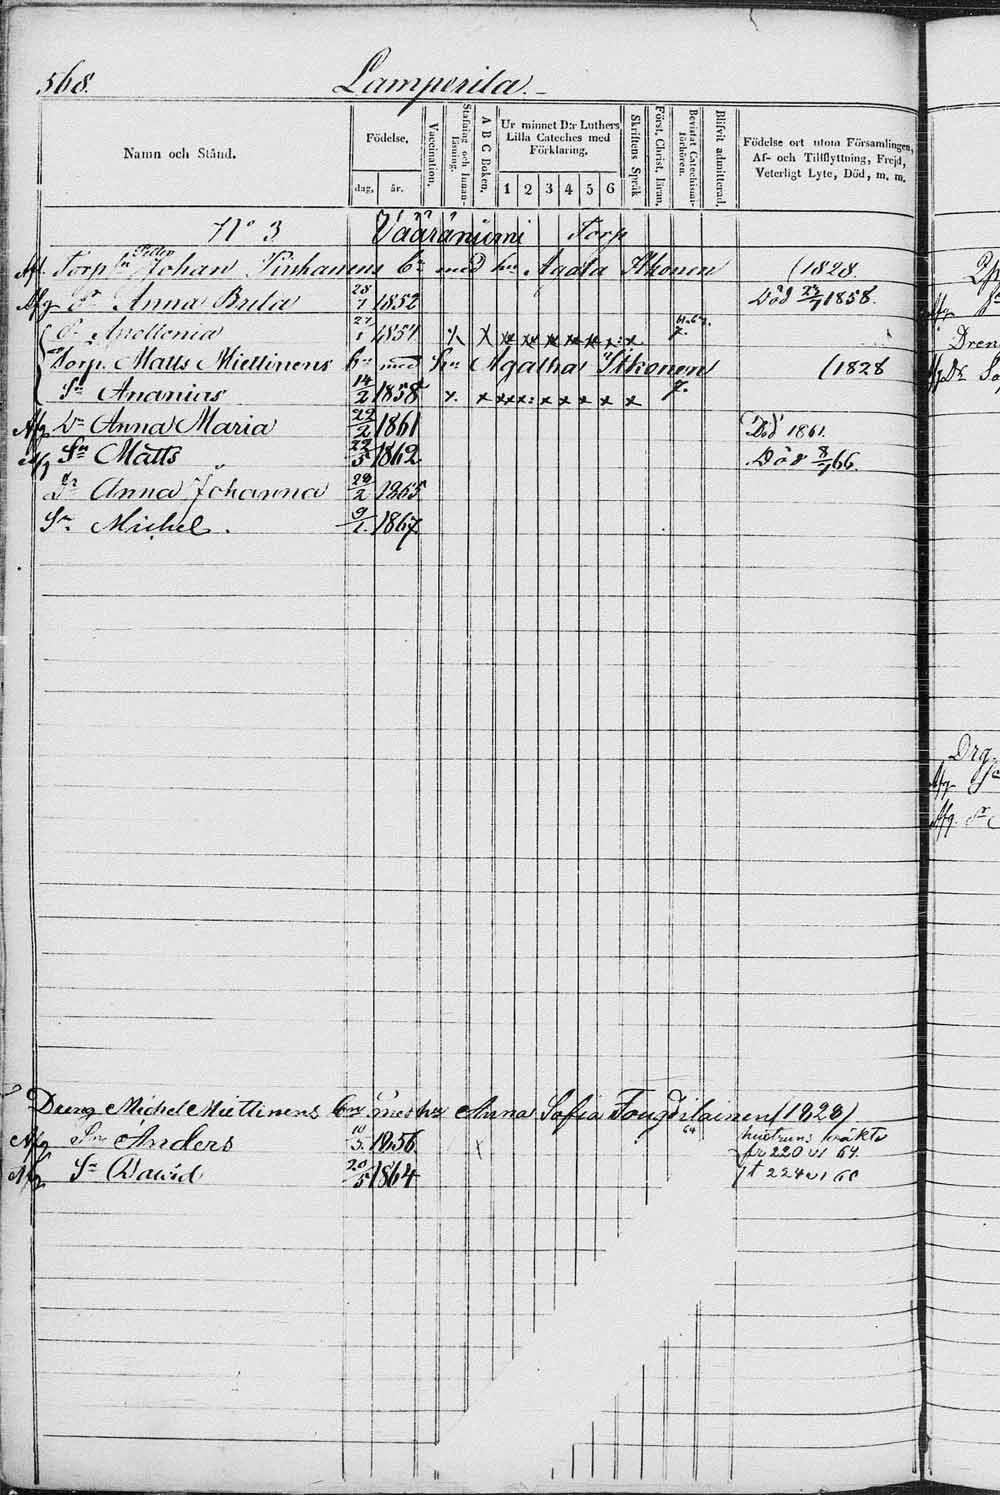 568.
Lamperila.
Namn och Stånd.
Födelse,
dag, år.
Vaccination.
Stafning och Innanläsning.
A B C Boken.
Ur minnet D:r Luthers Lilla Cateches med Förklaring.
1 2 3 4 5 6
Skriftens Språk
Först. Christ. läran.
Bevistat Catechismiförhören.
Blifvit admitterad.
Födelse ort utom Församlingen, Af- och Tillflyttning, Frejd, Veterligt Lyte, Död, m. m.
N:o 3 Vaaraniemi Torp
Afl. Torp Johan Tinhanens b:n med hu Agata Itkonen (1828.
Afg D:r Anna Brita 28/1 1852 Död 23/7 1858.
D:r Apollonia 27/1 1854
Torp. Matts Miettinens b:n med hu Agatha Itkonen (1828
S:n Ananias 14/2 1858 7.
Afg D:r Anna Maria 22/2 1861 Död 1861.
Afg S:n Matts 22/5 1862 Död 8/7 66.
D:r Anna Johanna 28/2 1865
S:n Michel. 9/1 1867
Dreng Michel Miettinens b:n med hu Anna Sofia Fougdilainen (1828)
Afg S:n Anders 10/3 1856 64
fr 220 v1 64.
Afg S:n David 20/5 1864 t 224 v1 66